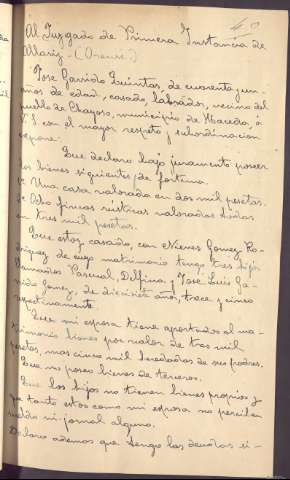 40
Al Juzgado de Primera Instancia de
Allariz - (Orense.)
José Garrido Quintas, de cuarenta y un
años de edad, casado, labrador, vecino del
pueblo de Chayoso, municipio de Maceda, á
V. S con el mayor respeto y subordinacion
expone:
Que declaro bajo juramento poseer
los bienes siguientes de fortuna.
Una casa valorada en dos mil pesetas.
Ocho fincas rusticas valoradas todas
en tres mil pesetas.
Que estoy casado, con Nieves Gomez Ro-
driguez de cuyo matrimonio tengo tres hijos
llamados Pascual, Delfina y José Luis Ga-
rrido Gomez, de diecisiete años, trece y cinco
respectivamente.
Que mi esposa tiene aportados al ma-
trimonio bienes por valor de tres mil
pesetas, mas cinco mil heredadas de sus padres.
Que no poseo bienes de terceros.
Que los hijos no tienen bienes propios y
ya tanto estos como mi esposa no perciben
sueldo ni jornal alguno.
Declaro ademas que tengo las deudas si-